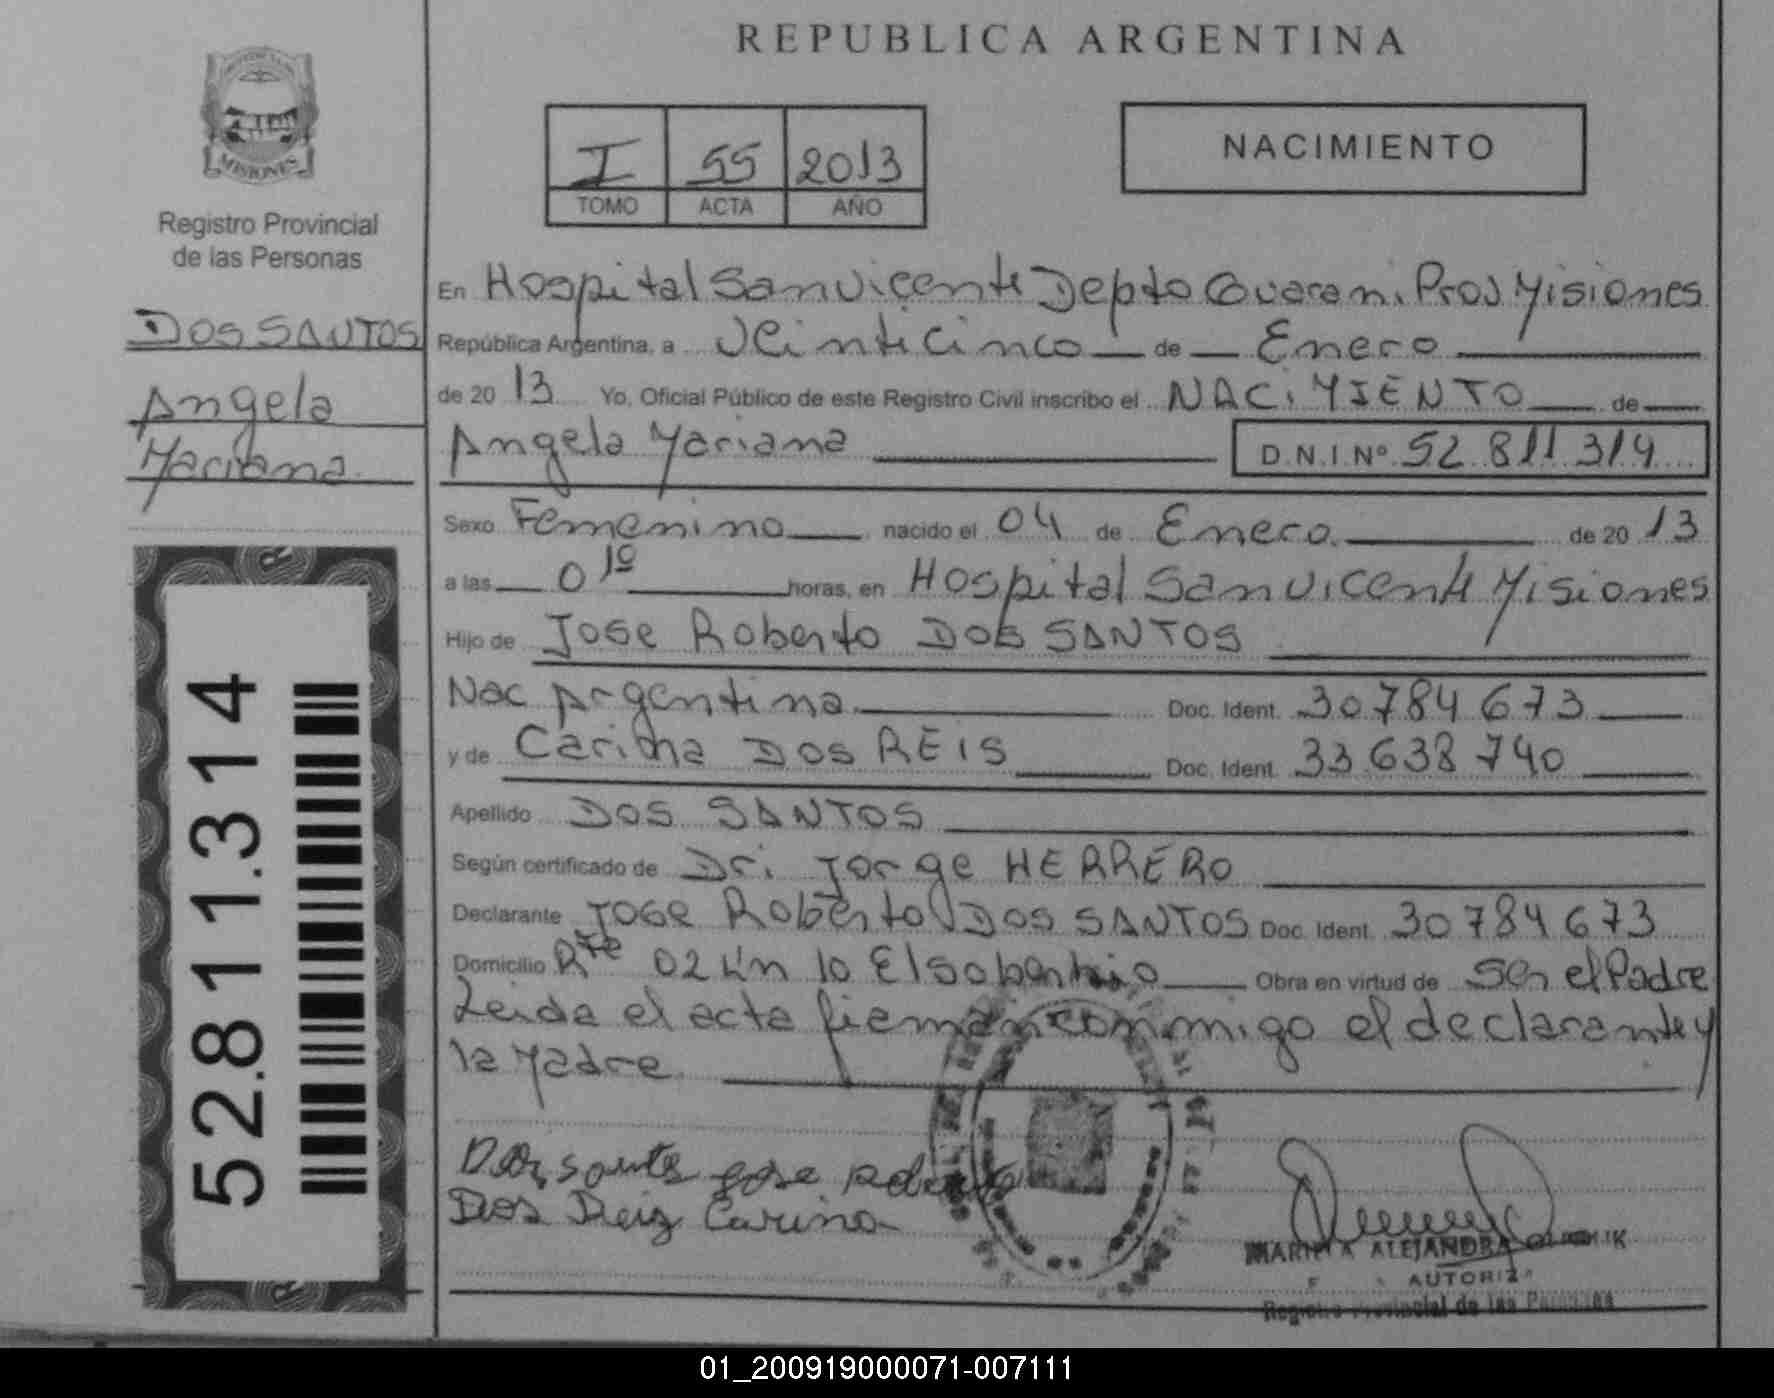 REPUBLICA ARGENTINA
MISIONES
Registro Provincial
de las Personas
DOS SANTOS
Angela
Mariana
52.811.314
I 55 2013
TOMO ACTA AÑO
NACIMIENTO
En Hospital San Vicente Depto Guarani Prov Misiones
República Argentina, a Veinticinco de Enero
de 20 13 Yo, Oficial Público de este Registro Civil inscribo el NACIMIENTO de
Angela Mariana D.N.I Nº 52.811.314
Sexo Femenino nacido el 04 de Enero de 20 13
a las 01º horas, en Hospital San Vicente Misiones
Hijo de Jose Roberto DOS SANTOS
Nac Argentina Doc. Ident. 30784673
y de Carina DOS REIS Doc. Ident. 33638740
Apellido DOS SANTOS
Según certificado de Dr. Jorge HERRERO
Declarante Jose Roberto DOS SANTOS Doc. Ident. 30784673
Domicilio Rte 02 Km 10 El Soberbio Obra en virtud de Ser el Padre
Leida el acta firman conmigo el declarante y
la Madre
Dos santos jose
Dos Reis Carina
ALEJANDRA
AUTORIZ
Registro Provincial de las Personas
01_200919000071-007111